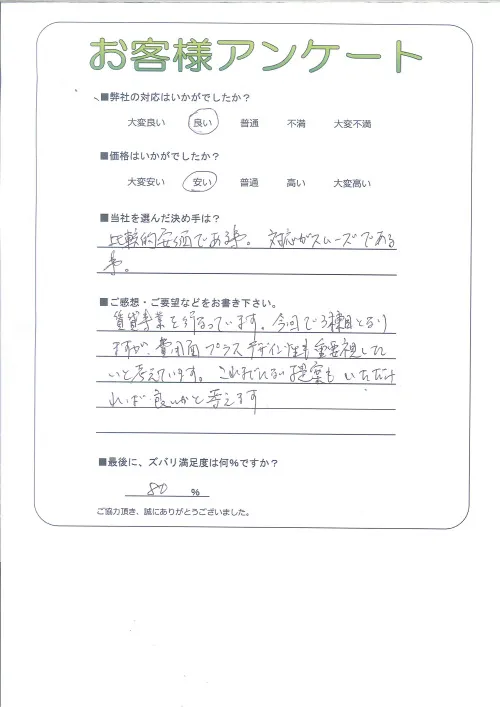 お客様アンケート
■弊社の対応はいかがでしたか？
大変良い 良い 普通 不満 大変不満
■価格はいかがでしたか？
大変安い 安い 普通 高い 大変高い
■当社を選んだ決め手は？
比較的安価である事。対応がスムーズである
事。
■ご感想・ご要望などをお書き下さい。
賃貸事業を行なっています。今回で3棟目となり
ますが、費用面プラスデザイン性も重要視した
いと考えています。これだれない提案もいただけ
れば良いかと考えます
■最後に、ズバリ満足度は何％ですか？
80 %
ご協力頂き、誠にありがとうございました。